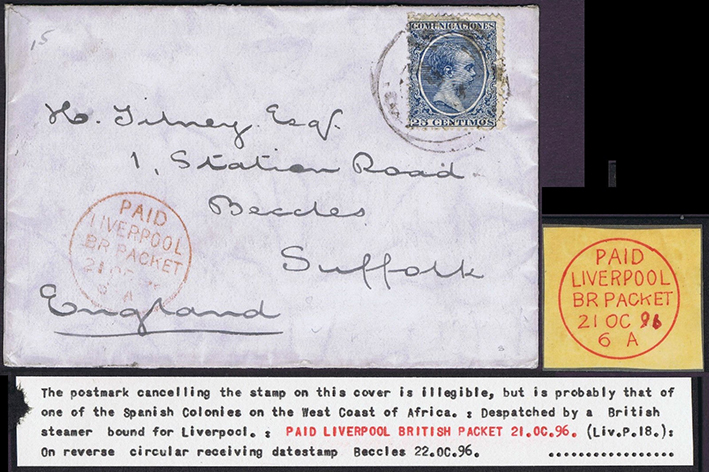 15
COMUNICACIONES
25 CENTIMOS
H. Tilney Esqr.
1, Station Road
Beccles
Suffolk
England
PAID
LIVERPOOL
BR PACKET
21 OC
6 A
PAID
LIVERPOOL
BR PACKET
21 OC 96
6 A
The postmark cancelling the stamp on this cover is illegible, but is probably that of
one of the Spanish Colonies on the West Coast of Africa. : Despatched by a British
steamer bound for Liverpool. : PAID LIVERPOOL BRITISH PACKET 21.OC.96. (Liv.P.18.):
On reverse circular receiving datestamp Beccles 22.OC.96. ................